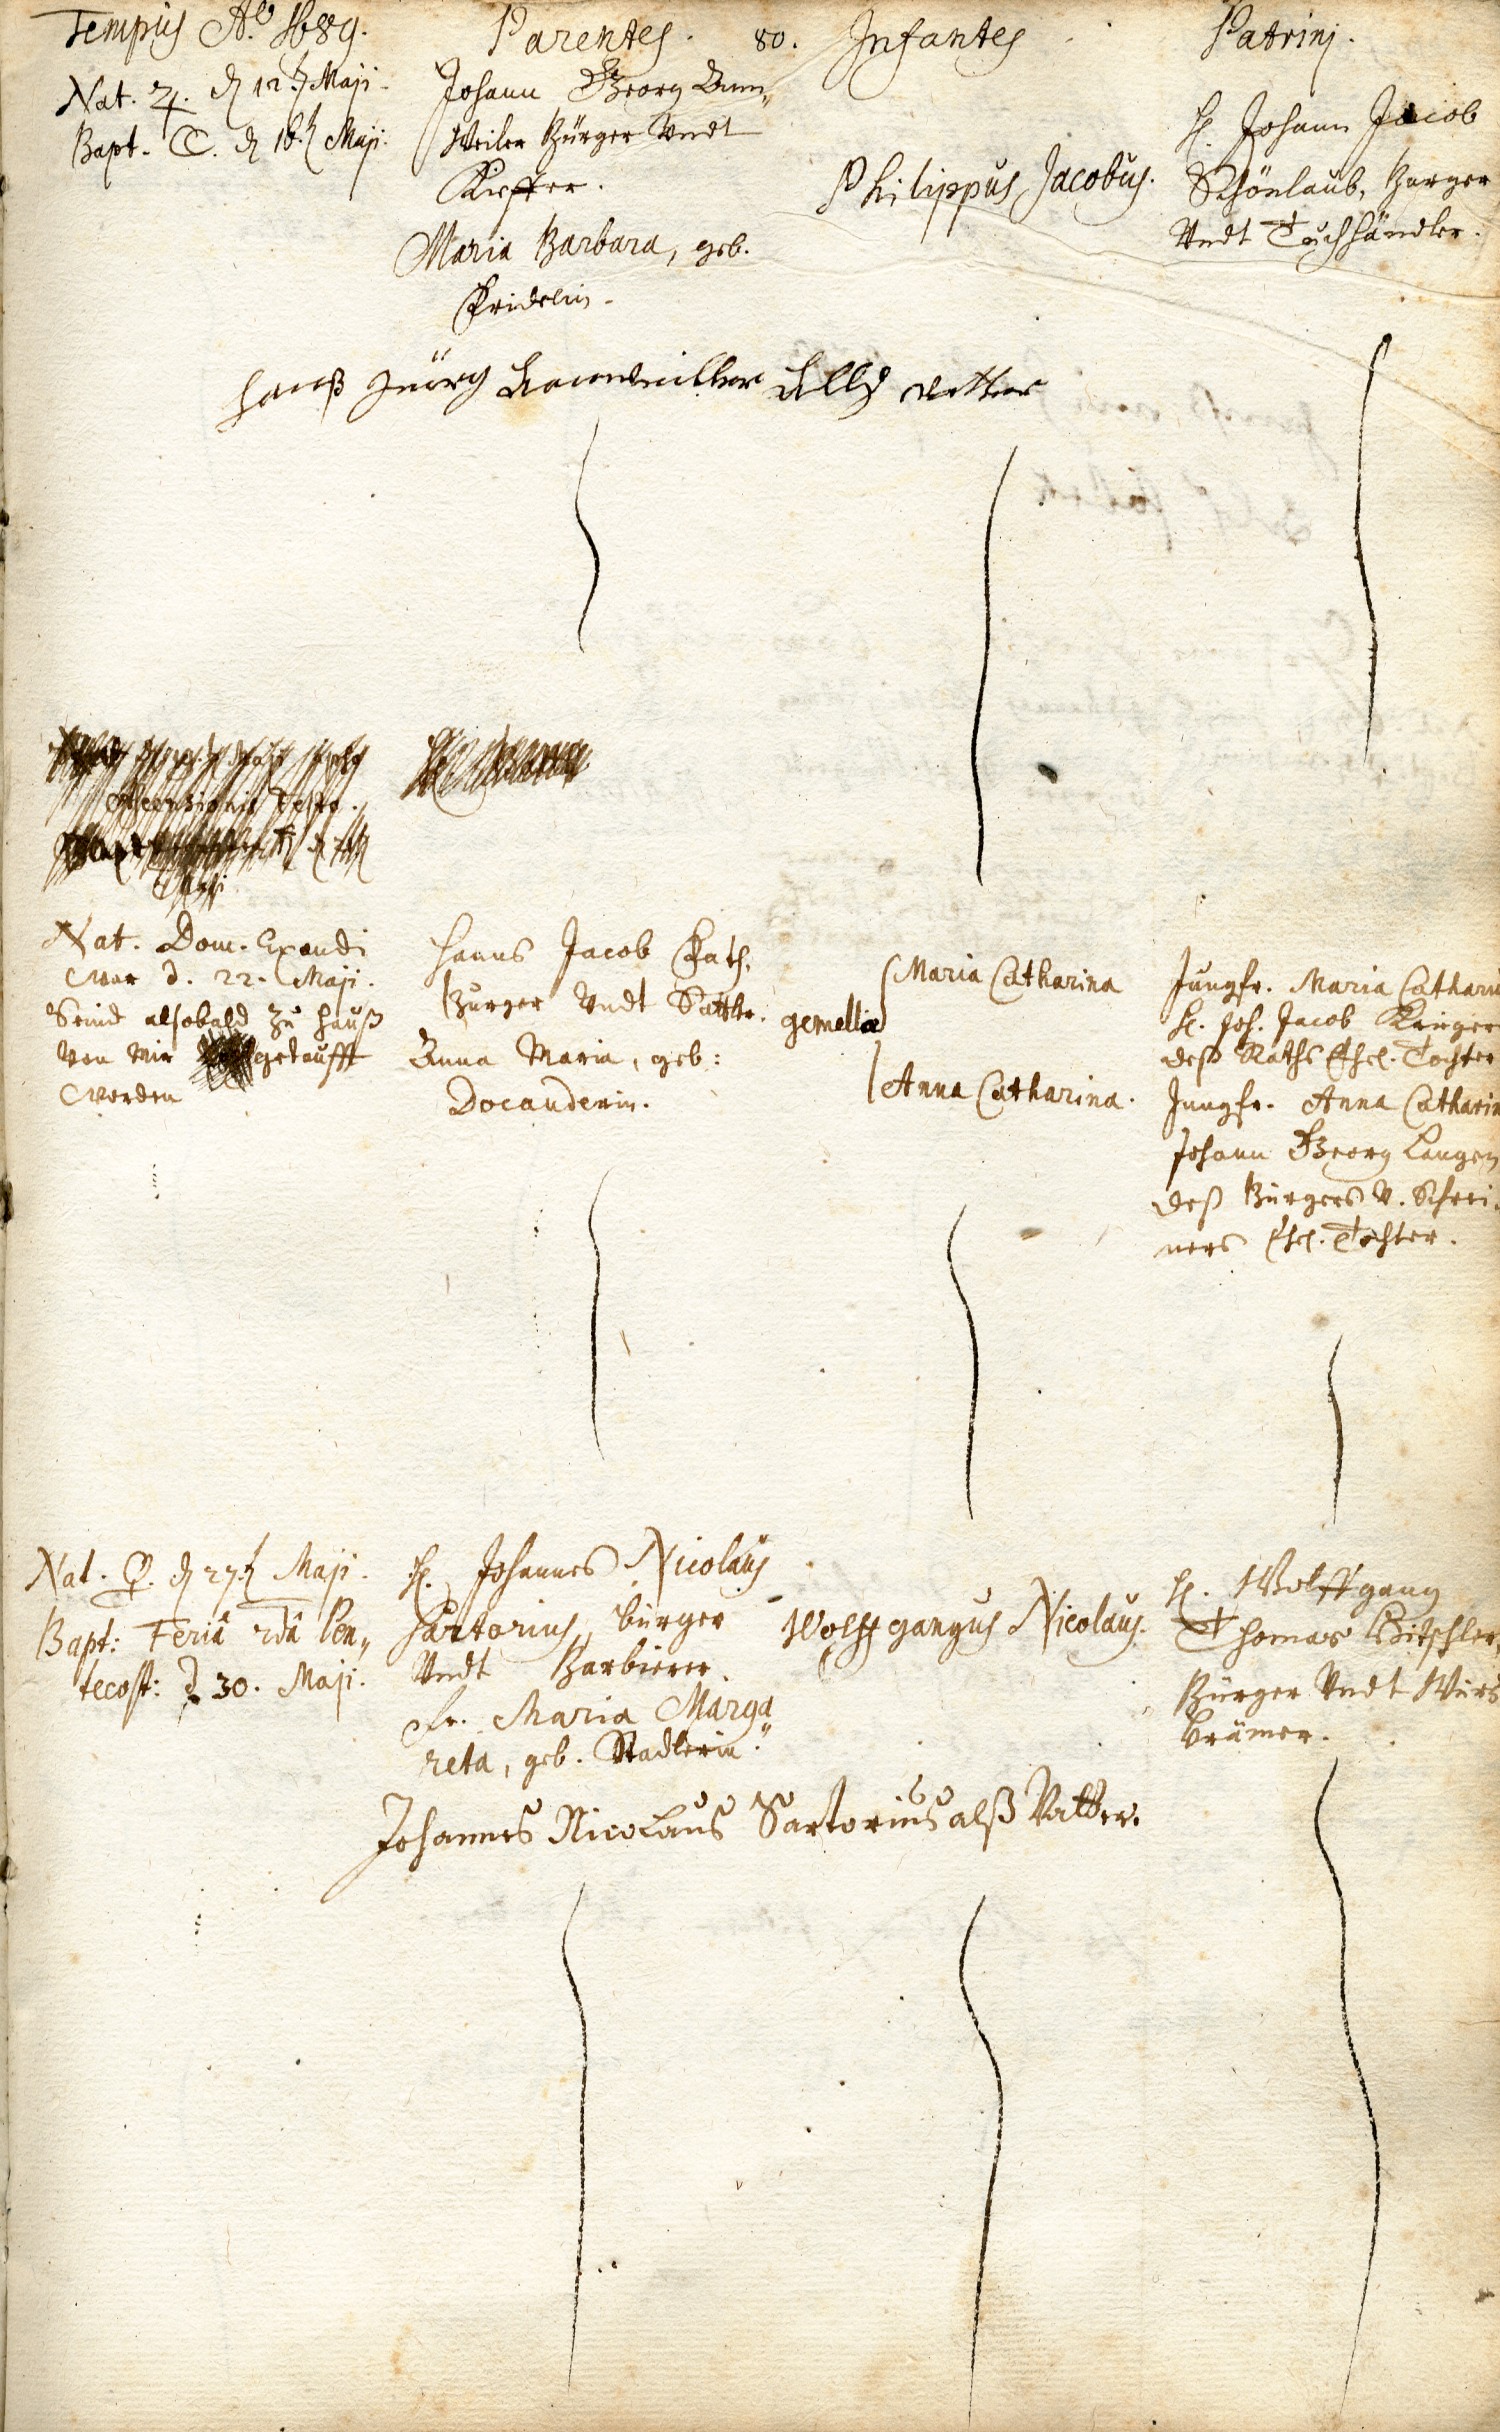 Tempus Aõ. 1689.
Parentes.
80.
Infantes
Patrinj.
Nat. ♃. d 12.t Maji.
Bapt. ☾. d 16.t Maji.
Johann Georg
Weiler Bürger Vndt
Kieffer.
Maria Barbara, geb.
Fridelin.
Philippus Jacobus.
H. Johann Jacob
Schönlaub, Burger
Vndt Tuchhändler.
Hanß Jüörg allß Vatter
Ascensionis Festo.
Maji
Nat. Dom. Exaudi
War d. 22. Maji.
Seind alsobald zu Hauß
Von Mir getaufft
Worden
Hanns Jacob Fath,
Burger Vndt Sattler.
Anna Maria, geb:
Docanderin.
gemellæ
Maria Catharina
Anna Catharina.
Jungfr. Maria Catharin
H. Joh. Jacob Krieger
deß Raths Ehel. Tochter
Jungfr. Anna Catharin
Johann Georg Langen
deß Burgers V. Schrei-
ners Ehel. Tochter.
Nat. ♀. d 27.t Maji.
Bapt: Feriâ 2dâ Pen„
tecost: d. 30. Maji.
H. Johannes Nicolaus
Sartorius, burger
Vndt Barbierer.
Fr. Maria Marga
reta, geb. Stadlerin.
Wolffgangus Nicolaus.
H. Wolffgang
Thomas
Bürger Vndt Würs
krämer.
Johannes Nicolaus Sartorius alß Vatter.